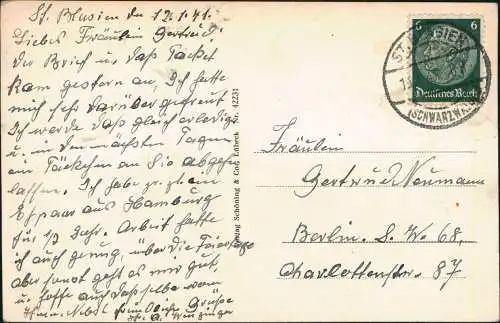 St. Blasien den 12.1.41.
Liebes Fräulein Gertrud!
Der Brief u. das Packet
kam gestern an, Ich hatte
mich sehr darüber gefreut
Ich werde das gleich erledigen
u. in den nächsten Tagen
ein Päckchen an Sie abgehn
lassen. Ich habe
Ehpaar aus Hamburg
für 1/2 Jahr. Arbeit hatte
ich auch genug, über die Feiertage
aber sonst geht es mir gut,
u. hoffe auch dasselbe von
Ihnen. Nebst freundlichen Grüße
Schöning & Co., Lübeck Nr. 42231
6
Deutsches Reich
ST. BLASIEN
(SCHWARZWALD)
Fräulein
Gertrud Neumann
Berlin. S. W. 68,
Charlottenstr. 87